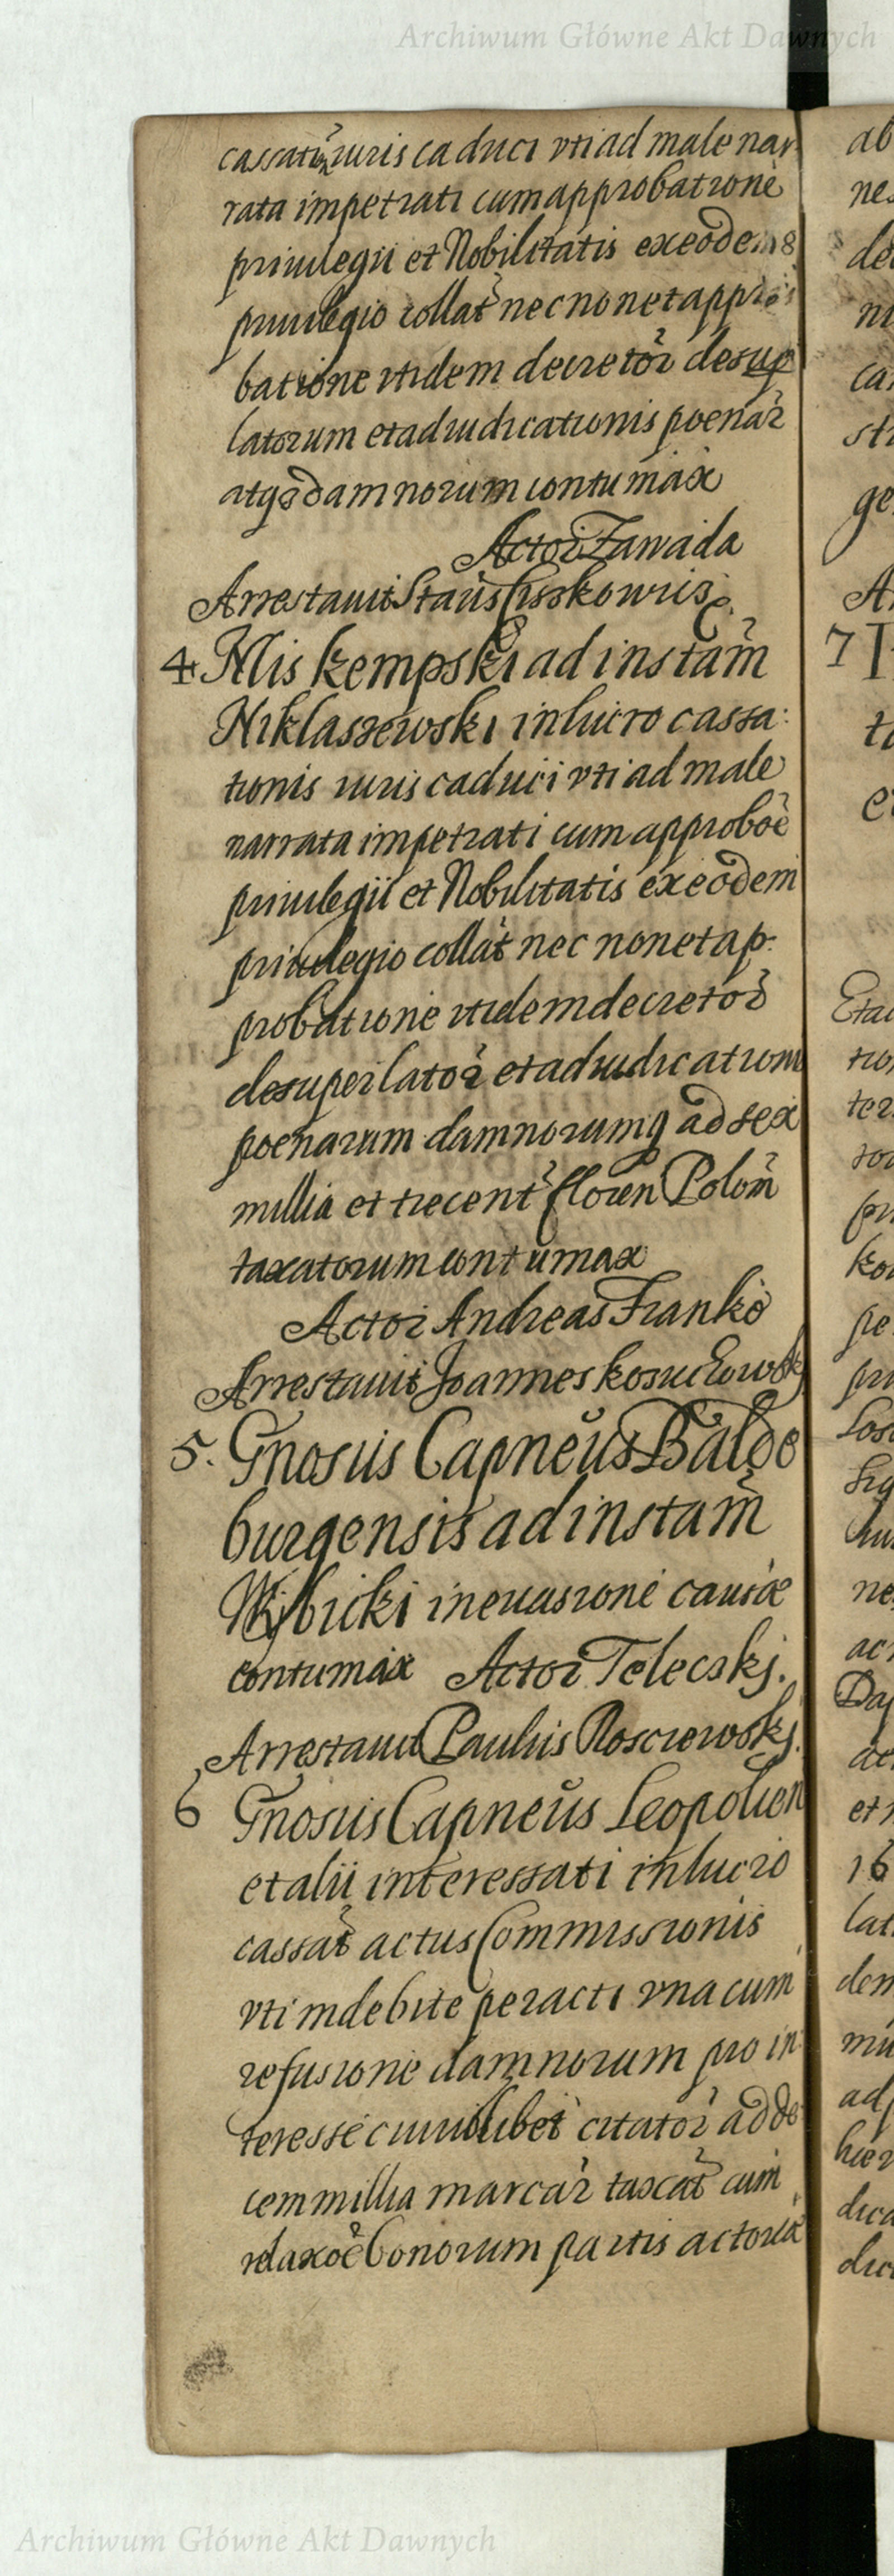 Archiwum Główne Akt Dawnych
cassatur iuris caduci vti ad male nar
rata impetrati cum approbatione
priuilegii et Nobilitatis ex eodem
priuilegio collat nec non et appro
batione itidem decretor desup
latorum et adiudicationis poenar
atq damnorum contumax
Actor Zawaida
Arrestauit Staus
4 Mis Kempski ad instam
Niklaszewski in lucro cassa:
tionis iuris caduci vti ad male
narrata impetrati cum approboe
priuilegii et Nobilitatis ex eodem
priuilegio collat nec non et ap
probatione itidem decretor
desuper lator et adiudication
poenarum damnorumq ad sex
millia et trecent floren Polon
taxatorum contumax
Actor Andreas Franko
Arrestauit Joannes
5. Gnosus Capneus Balde
burgensis ad instam
Wybicki in euasione causæ
contumax Actor Telecskj.
Arrestauit Paulus Rosciewskj.
6 Gnosus Capneus Leopolien
et alii interessati in lucro
cassat actus Commissionis
vti indebite peracti vna cum
refusione damnorum pro in
teresse cuiuslibet citator ad de
cem millia marcar taxat cum
relaxoe bonorum partis actoreæ
ab
nes
de
ni
ca
st
ge
A
7
Etac
tio
ter
ko
pe
ne
ac
et
16
lat
dem
mu
ad
dica
Archiwum Główne Akt Dawnych